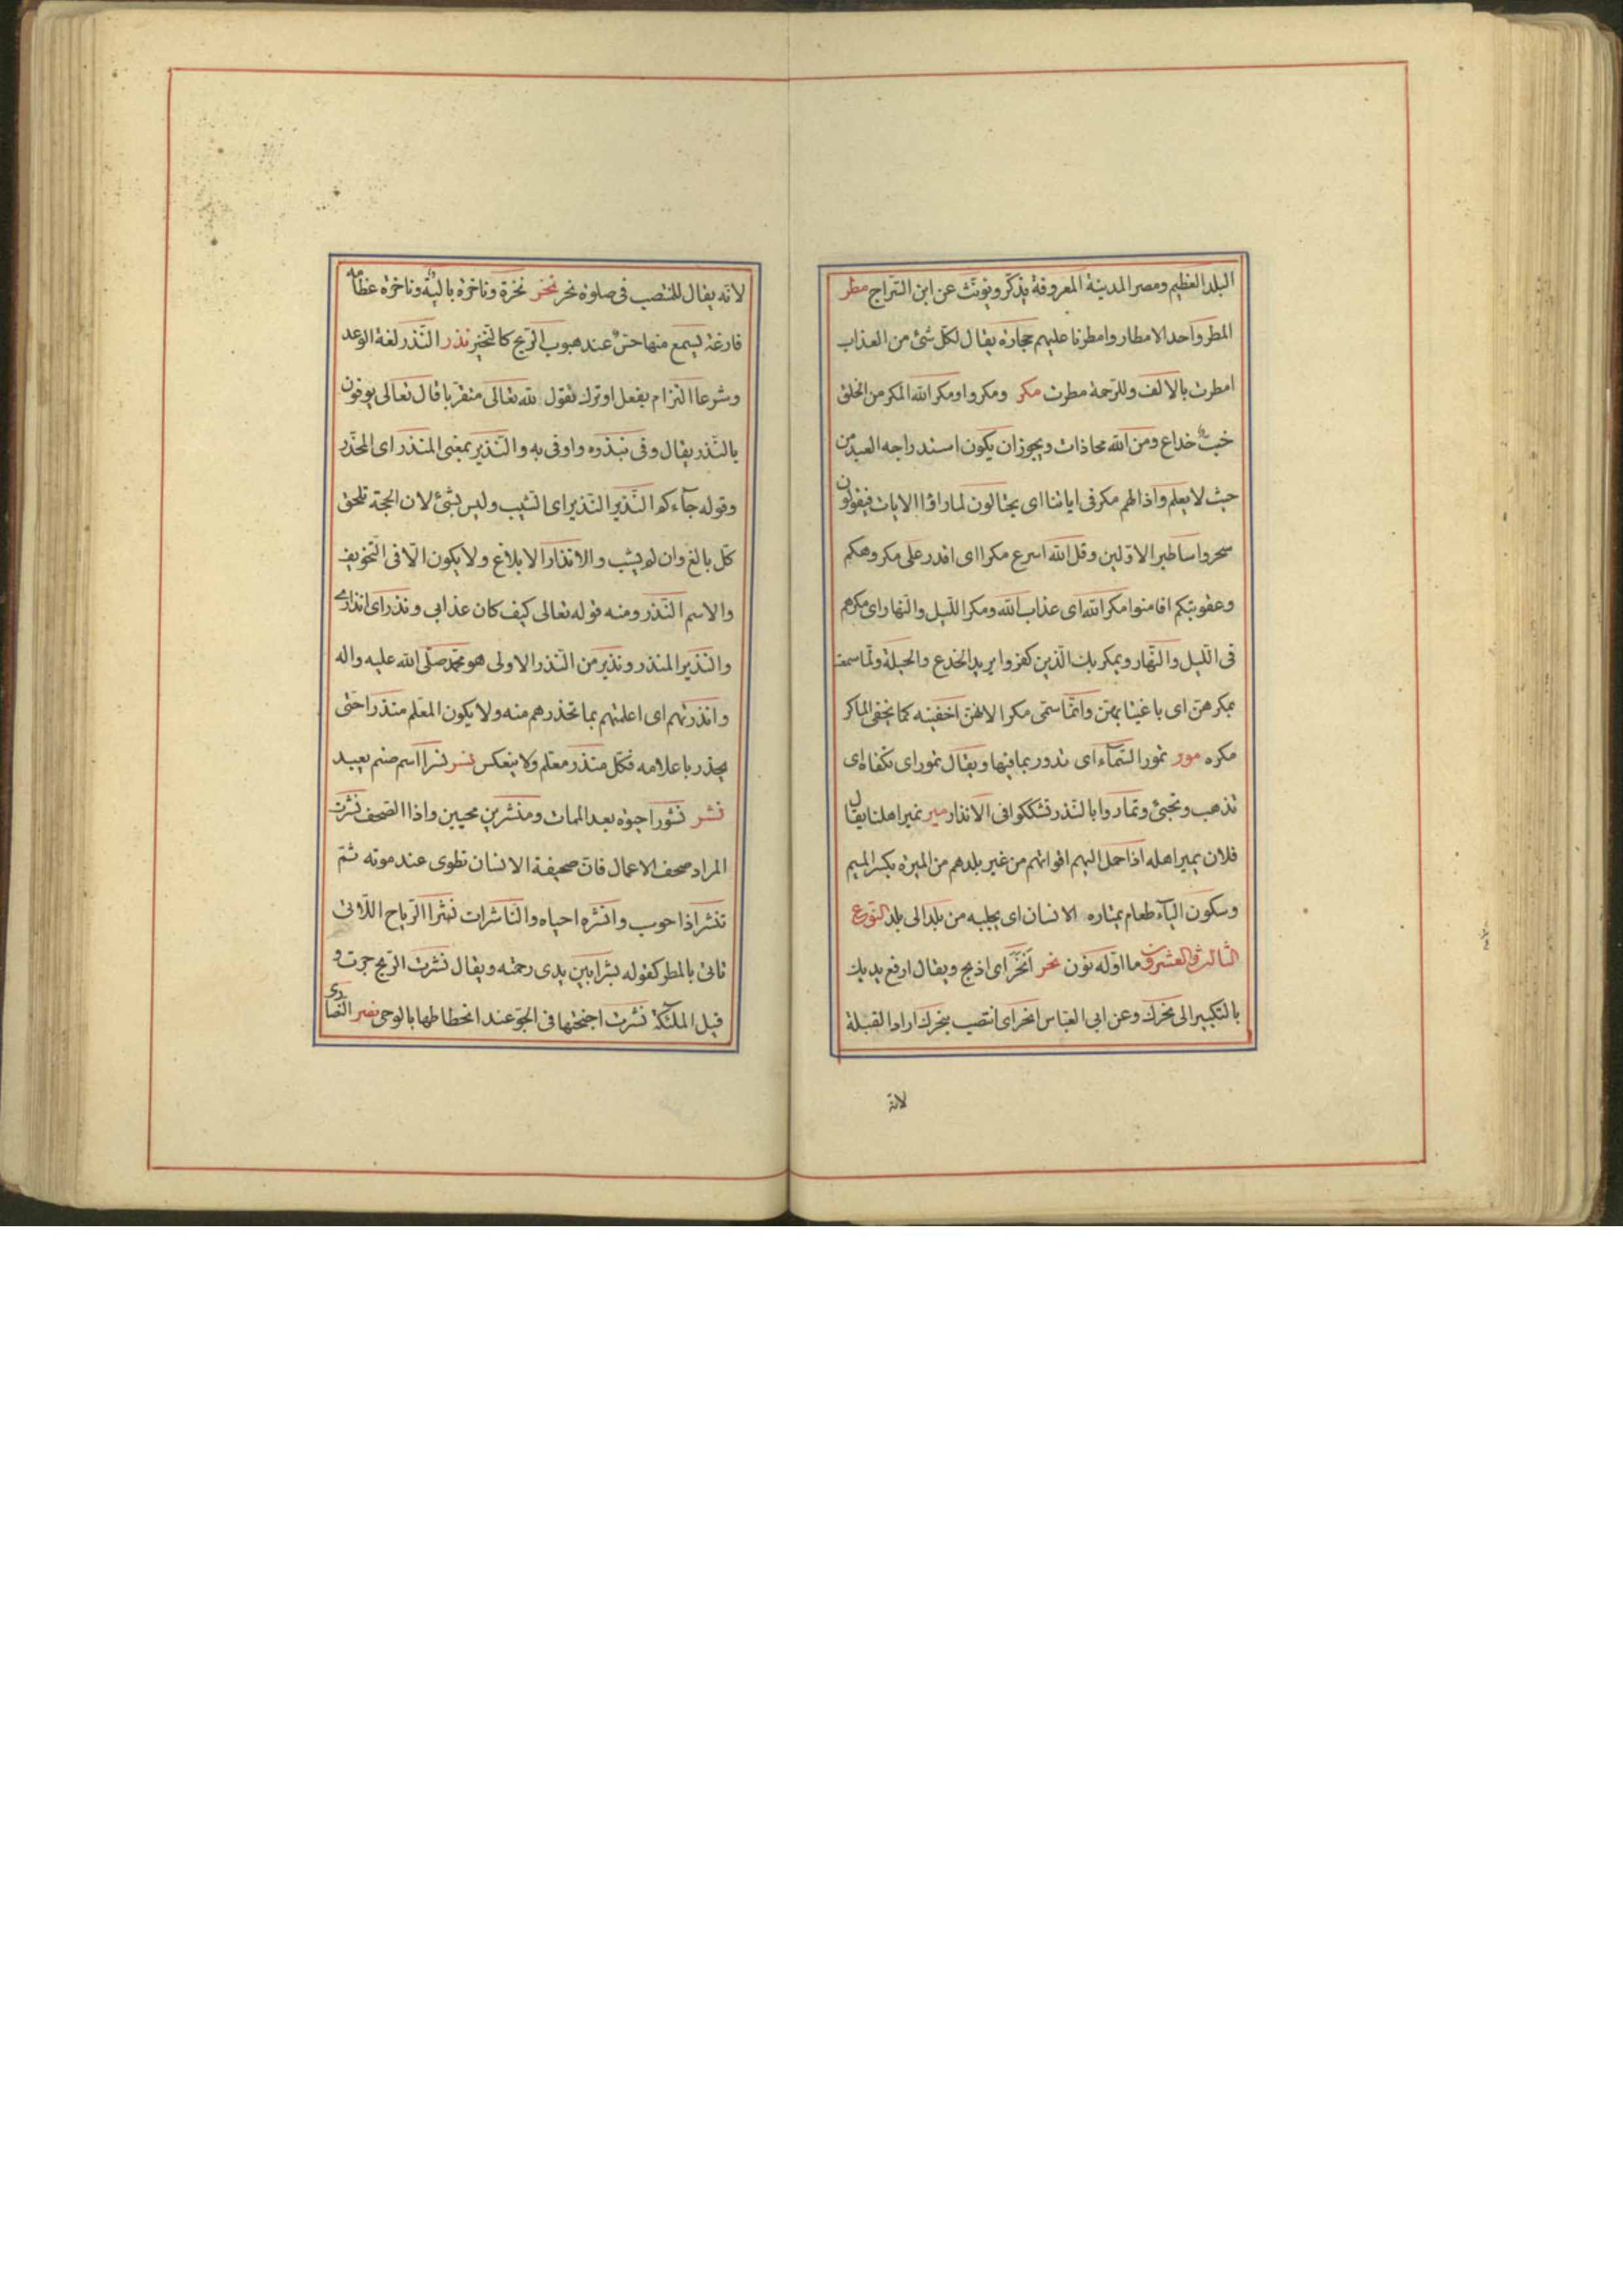 البلد العظيم ومصر المدينة المعروفة يذكر ويونث عن ابن السراج مطر
المطر واحد الامطار وامطرنا عليهم حجارة يقال لكل شئ من العذاب
امطرت بالالف وللرحمة مطرت مكر ومكروا ومكر الله المكر من الخلق
خبث خداع ومن الله مجاذات ويجوز ان يكون استدراجه العبد من
حيث لا يعلم واذا لهم مكر فى اياتنا اى يحتالون لما راوا الايات فيقولون
سحر واساطير الاولين وقل الله اسرع مكرا اى اقدر على مكروهكم
وعقوبتكم افامنوا مكر الله اى عذاب الله ومكر الليل والنهار اى مكرهم
فى الليل والنهار ويمكر بك الذين كفروا يريد الخدع والحيلة ولما سمعت
بمكرهن اى باغتيابهن وانما سمى مكرا لانهن اخفينه كما يخفى الماكر
مكره مور تمور السمآء اى تدور بما فيها ويقال تمور اى تكفاء اى
تذهب وتجئ وتماروا بالنذر تشككوا فى الانذار مير نمير اهلنا يقال
فلان يمير اهله اذا حمل اليهم اقواتهم من غير بلدهم من الميرة بكسر الميم
وسكون اليآء طعام يمتاره الانسان اى يجلبه من بلد الى بلد النوع
الثالث والعشرون ما اوله نون نحر انحر اى اذبح ويقال ارفع يديك
بالتكبير الى نحرك وعن ابى العباس انحر اى انتصب بنحرك اراد القبلة
لانه
لانه يقال للمنتصب فى صلوة نحر نخر نخرة وناخرة بالية وناخرة عظامه
فارغة يسمع منها حس عند هبوب الريح كالنخير نذر النذر لغة الوعد
وشرعا التزام بفعل او ترك تقول لله تعالى متقربا قال تعالى يوفون
بالنذر يقال وفى بنذره واوفى به والنذير بمعنى المنذر اى المحذر
وقوله جآءكم النذير النذير اى الشيب وليس بشئ لان الحجة تلحق
كل بالغ وان لم يشب والانذار الابلاغ ولا يكون الا فى التخويف
والاسم النذر ومنه قوله تعالى كيف كان عذابى ونذر اى انذارى
والنذير المنذر ونذير من النذر الاولى هو محمد صلى الله عليه واله
وانذرتهم اى اعلمتهم بما تحذرهم منه ولا يكون المعلم منذرا حتى
يحذر باعلامه فكل منذر معلم ولا ينعكس نسر نسرا اسم صنم يعبد
نشر نشورا حيوة بعد الممات ومنشرين محيين واذا الصحف نشرت
المراد صحف الاعمال فان صحيفة الانسان تطوى عند موته ثم
تنشر اذا حوسب وانشره احياه والناشرات نشرا الرياح اللاتى
تاتى بالمطر كقوله بشرا بين يدى رحمته ويقال نشرت الريح جرت و
قيل الملئكة نشرت اجنحتها فى الجو عند انحطاطها بالوحى نصر النصارى